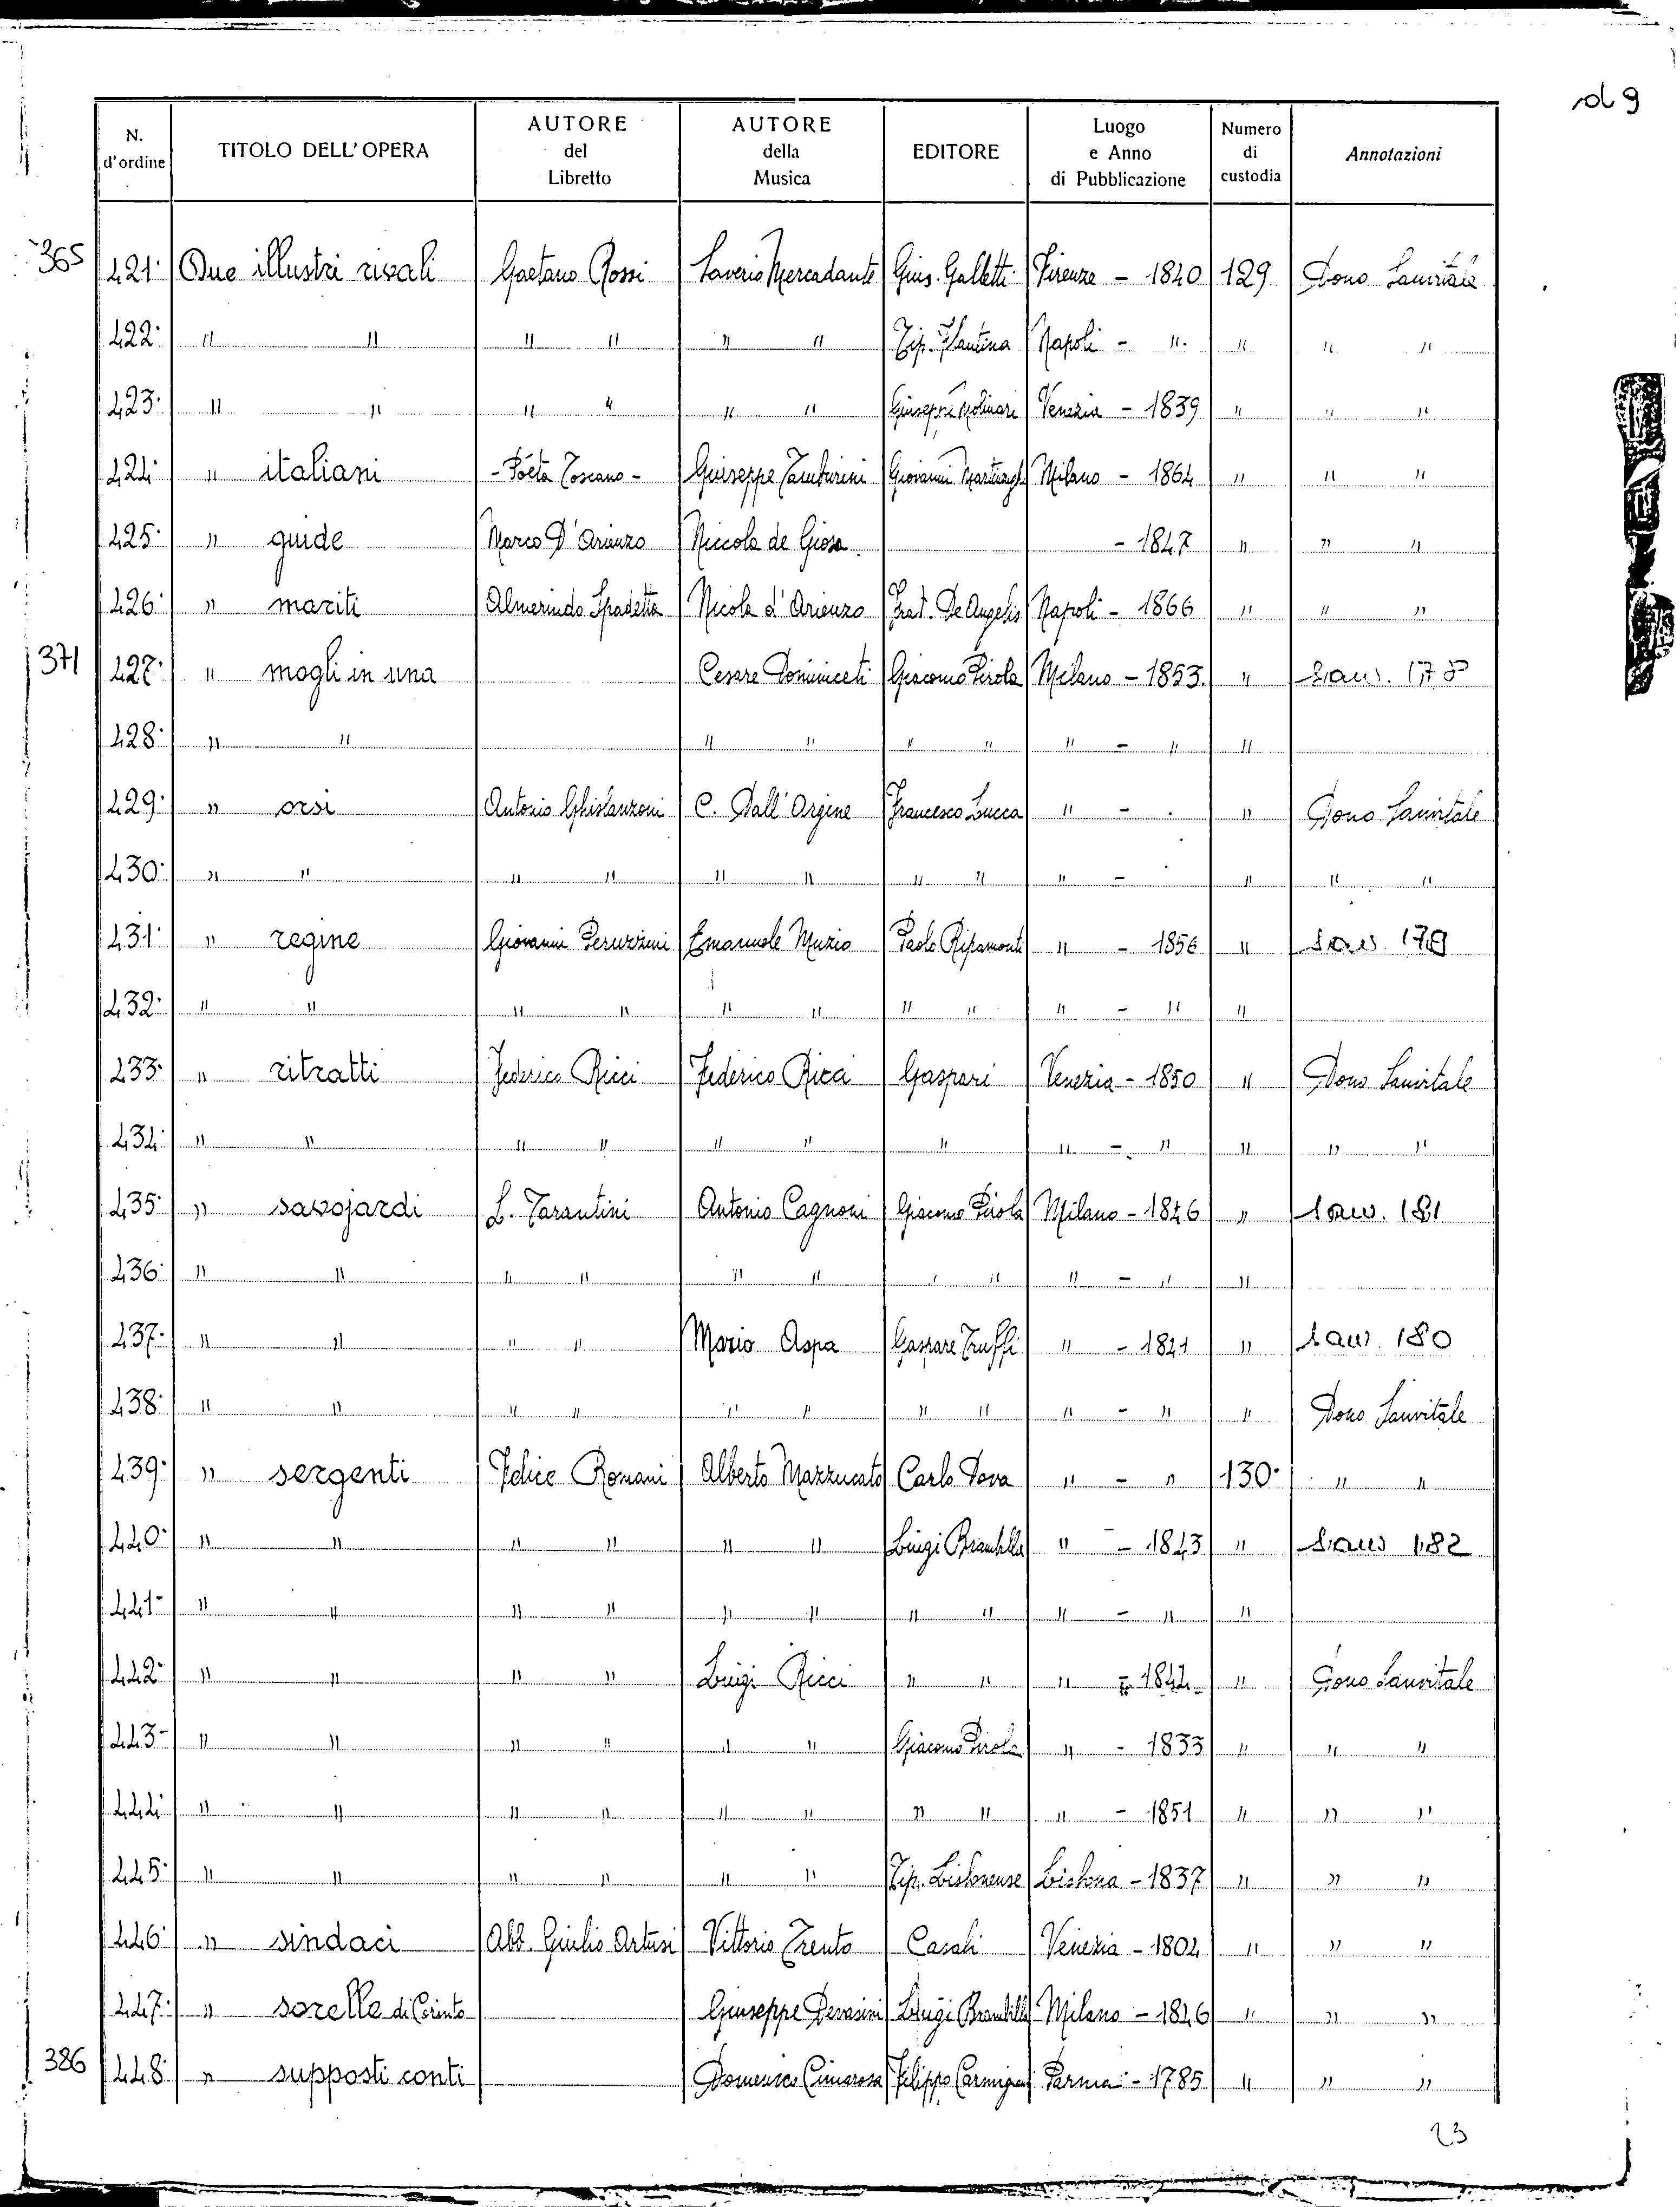 vol 9
N. d'ordine TITOLO DELL'OPERA AUTORE del Libretto AUTORE della Musica EDITORE Luogo e Anno di Pubblicazione Numero di custodia Annotazioni
365 421· Due illustri rivali Gaetano Rossi Saverio Mercadante Gius. Galletti Firenze - 1840 129 Dono Sanvitale
422· " " " " " " Tip. Plautina Napoli - " " " "
423· " " " " " " Giuseppe Molinari Venezia - 1839 " " "
424· " italiani - Poeta Toscano - Giuseppe Tamburini Giovanni Milano - 1864 " " "
425· " guide Marco D'Arienzo Niccola de Giosa - 1847 " " "
426· " mariti Almerindo Spadetta Nicola d'Arienzo Frat. De Angelis Napoli - 1866 " " "
371 427· " mogli in una Cesare Dominiceti Giacomo Pirola Milano - 1853. " Sauv. 178
428· " " " " " " " - " "
429· " orsi Antonio Ghislanzoni C. Dall'Argine Francesco Lucca " - " Dono Sanvitale
430· " " " " " " " " " - " " "
431· " regine Giovanni Peruzzini Emanuele Muzio Paolo Ripamonti " - 1856 " Sauv. 179
432· " " " " " " " " " - " "
433· " ritratti Federico Ricci Federico Ricci Gaspari Venezia - 1850 " Dono Sanvitale
434· " " " " " " " " - " " " "
435· " savojardi L. Tarantini Antonio Cagnoni Giacomo Pirola Milano - 1846 " Sauv. 181
436· " " " " " " " " " - " "
437· " " " " Mario Aspa Gaspare Truffi " - 1841 " Sauv. 180
438· " " " " " " " " " - " " Dono Sanvitale
439· " sergenti Felice Romani Alberto Mazzucato Carlo Dova " - " 130· " "
440· " " " " " " Luigi Brambilla " - 1843 " Sauv 182
441- " " " " " " " " " - " "
442· " " " " Luigi Ricci " " " - 1844 " Dono Sanvitale
443- " " " " " " Giacomo Pirola " - 1833 " " "
444· " " " " " " " " " - 1851 " " "
445· " " " " " " Tip. Lisbonense Lisbona - 1837 " " "
446· " sindaci Abb. Giulio Artusi Vittorio Trento Casali Venezia - 1804 " " "
447· " sorelle di Corinto Giuseppe Devasini Luigi Brambilla Milano - 1846 " " "
386 448· " supposti conti Domenico Cimarosa Filippo Carmignani Parma - 1785 " " "
23